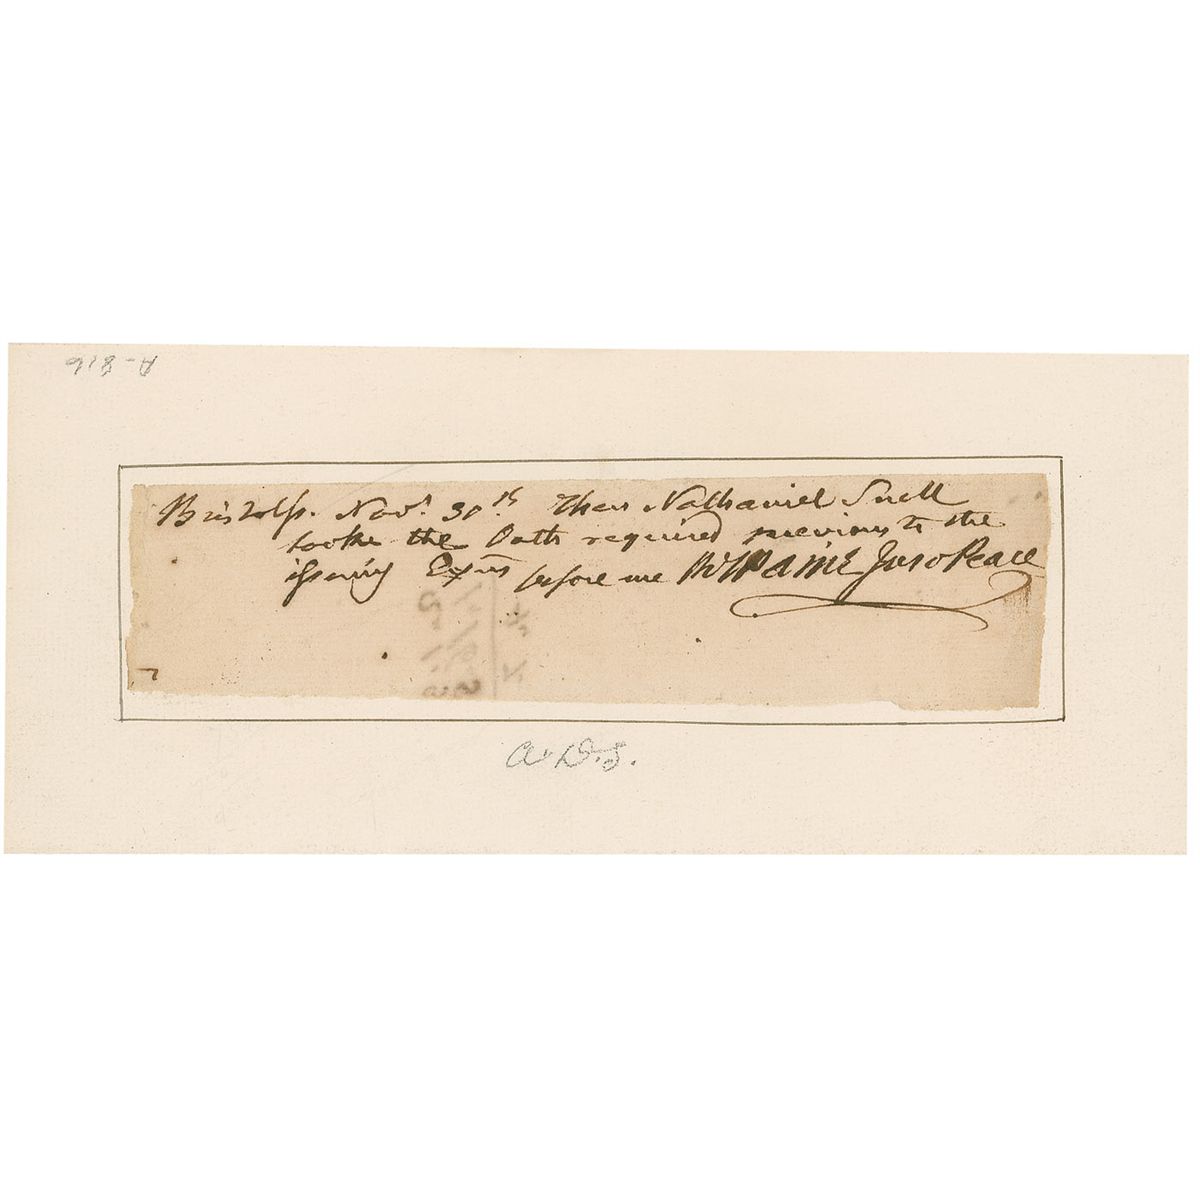 A-816
Bristolss. Novr. 30th Then Nathaniel Snell
tooke the Oath required previous to the
issuing Exõns before me RTPaine Jus o Peace
A.D.S.